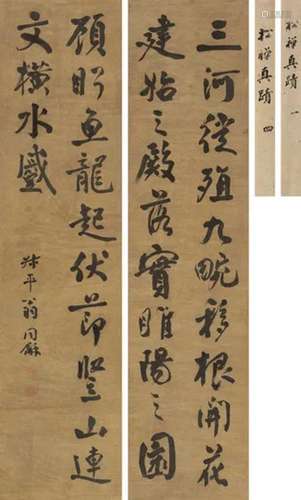 松禪真蹟 一
松禪真蹟 四
三河徙殖九畹移根開花
建始之殿落實睢陽之園
顧盼魚龍起伏節豎山連
文橫水蹙
叔平翁同龢